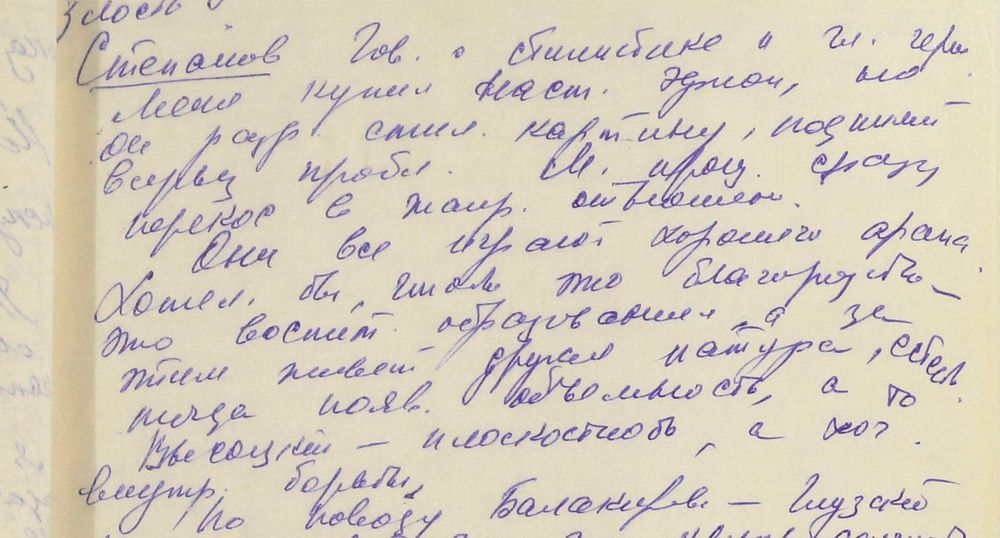 злость
Степанов Гов. о стилистике и гл. герое
Меня купил наст. Эджон, но
он разр. стил. картину, поднимает
всерьез пробл. М. проц. сразу
перекос в жанр. отношен.
Они все играют хорошего арапа.
Хотел. бы, чтобы это благородство –
это воспит. образования, а за
этим живет другая натура, степь
тогда появ. объемность, а то
Высоцкий – плоскостность, а хот.
внутр. борьбы.
По поводу Балакирева – Глузский